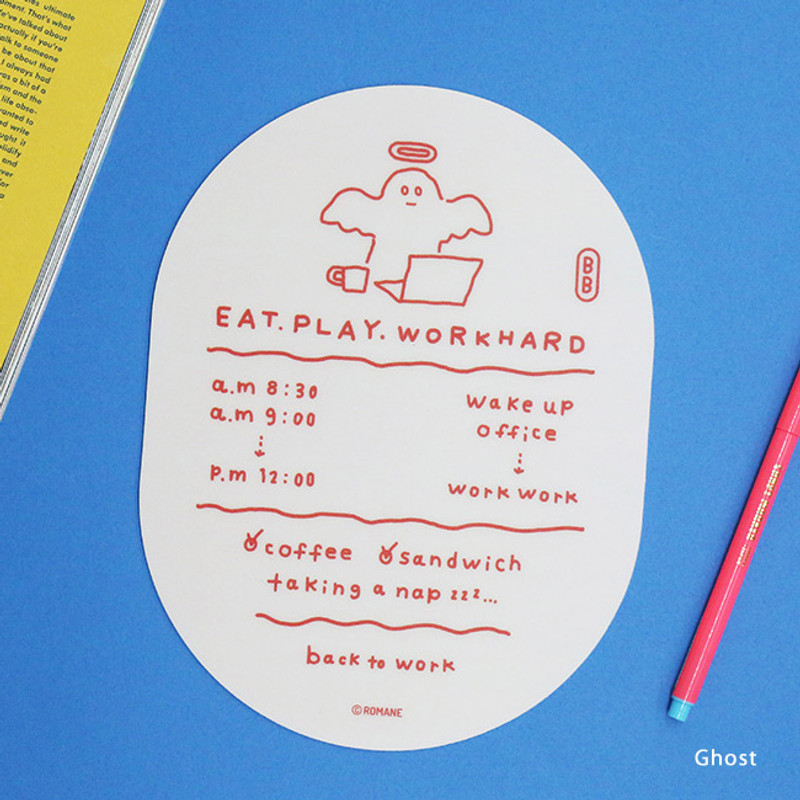 ites ultimate
dment. That's what
We've talked about
actually if you're
alk to someone
be about that
I always had
was a bit of a
sm and the
life obse-
wanted to
ed write
ught it
olidify
and
over
for
a
BB
EAT. PLAY. WORKHARD
a.m 8:30 wake up
a.m 9:00 office
p.m 12:00 work work
coffee sandwich
taking a nap zzz...
back to work
©ROMANE
Ghost